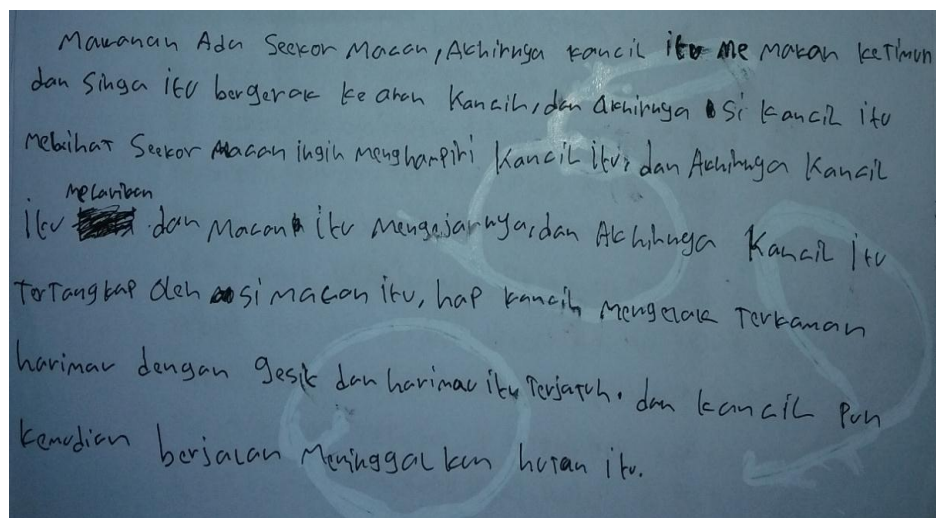 Mawanan Ada Seekor Macan, Akhirnya kancil itu me makan ketimun
dan Singa itu bergerak ke arah Kancil, dan akhirnya si kancil itu
melihat Seekor Macan ingin menghampiri Kancil itu, dan Akhirnya Kancil
itu melarikan dan Macan itu mengejarnya, dan Akhirnya Kancil itu
Tertangkap oleh si macan itu, hap kancil mengelak Terkaman
harimau dengan gesik dan harimau itu Terjatuh. dan kancil pun
kemudian berjalan Meninggalkan hutan itu.